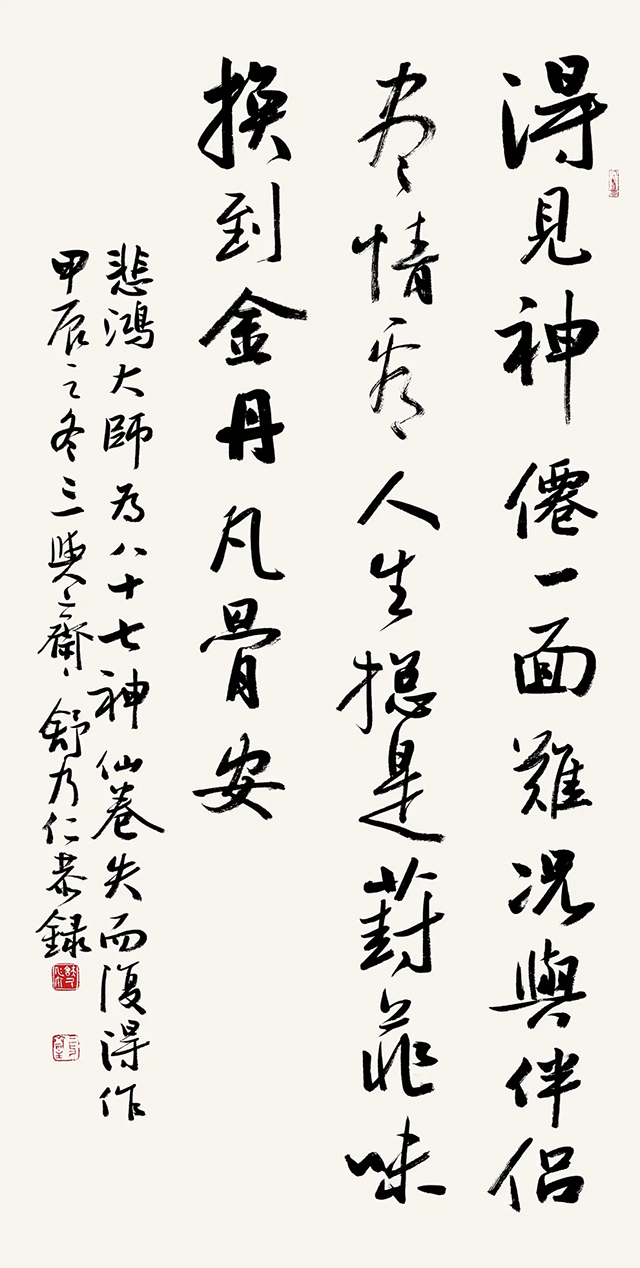 得見神僊一面難況與伴侶
尽情看人生摠是葑菲味
換到金丹凡骨安
悲鴻大師為八十七神仙卷失而復得作
甲辰之冬三與之齋舒乃仁恭録